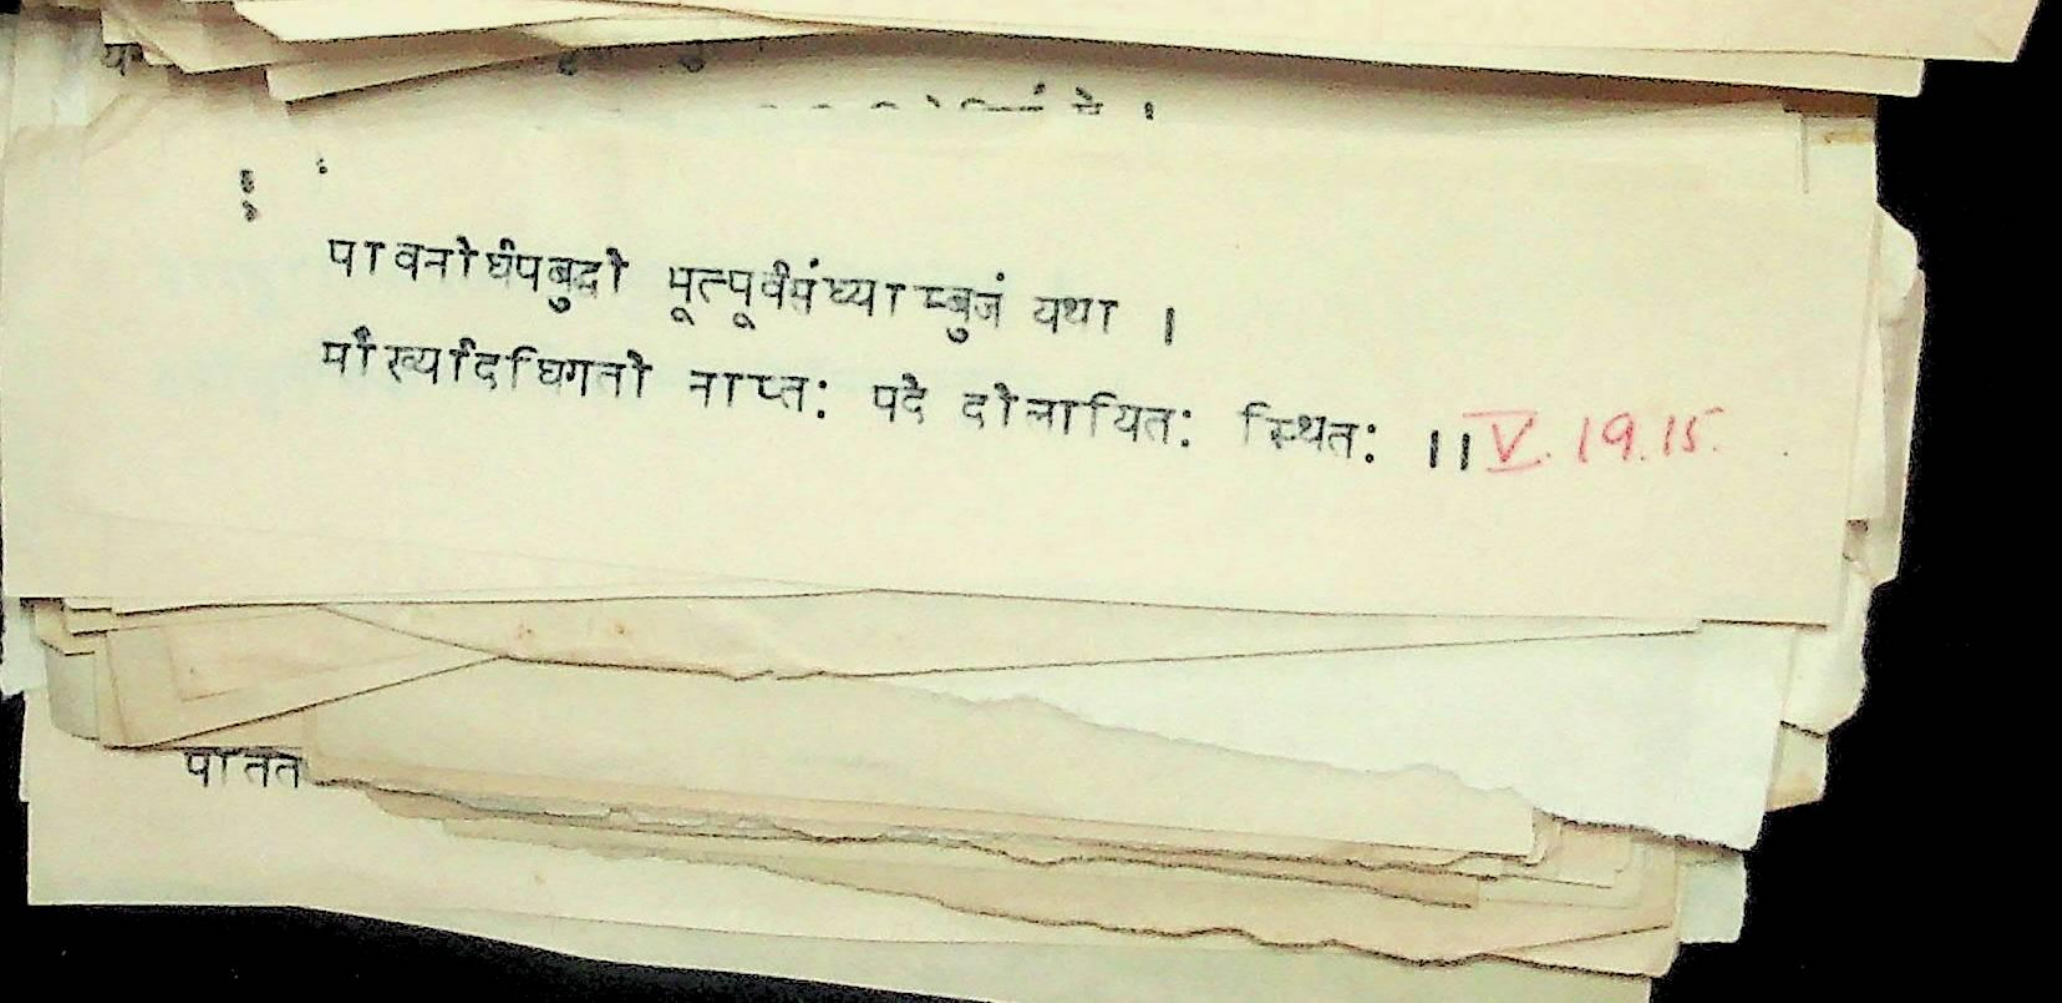 पावनोर्धपबुद्धो भूत्पूर्वसंध्याम्बुजं यथा ।
मौर्ख्यादधिगतो नाप्त: पदे दोलायित: स्थित: ।। V. 19.15.
पातत